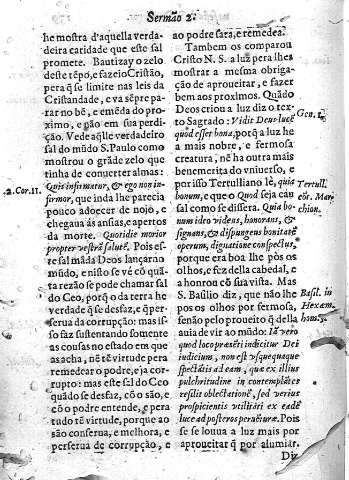 Sermão 2.
he mostra d'aquella verda-
deira caridade que este sal
promete. Bautizay o zelo
deste tẽpo, e fazei o Cristão,
pera q̃ se limite nas leis da
Cristandade, e va sẽpre pa-
rar no bẽ, e emẽda do pro-
ximo, e não em sua perdi-
ção. Vede aq̃lle verdadeiro
sal do mũdo S. Paulo como
mostrou o grãde zelo que
tinha de conuerter almas:
2. Cor. 11.
Quis infirmatur, & ego non in-
firmor, que inda lhe parecia
pouco adoecer de nojo, e
chegaua ás ansias, e apertos
da morte. Quotidie morior
propter vestrã salutẽ. Pois es-
te sal mãda Deos lançar no
mũdo, e nisto se vé cõ quã-
ta rezão se pode chamar sal
do Ceo, porq̃ o da terra he
verdade q̃ se desfaz, e q̃ per-
serua da corrupção: mas is-
so faz sustentando somente
as cousas no estado em que
as acha, nẽ tẽ virtude pera
remedear o podre, e ja cor-
rupto: mas este sal do Ceo
quãdo se desfaz, cõ o são, e
cõ o podre entende, e pera
tudo tẽ virtude, porque ao
são conserua, e melhora, e
perserua de corrupção, e
ao podre sara, e remedea.
Tambem os comparou
Cristo N. S. a luz pera lhes
mostrar a mesma obriga-
ção de aproueitar, e fazer
bem aos proximos. Quãdo
Deos criou a luz diz o tex-
to Sagrado: Vidit Deus lucẽ
Gen. 1.
quod esset bona, porq̃ a luz he
a mais nobre, e fermosa
creatura, nẽ ha outra mais
benemerita do vniuerso, e
por isso Tertulliano lè, quia
Tertull.
bonum, que o Quod seja cau-
cõt. Mar
sal como se dissera. Quia bo-
chion.
num ido videns, honorans, &
signans, & dispungens bonitatẽ
operum, dignatione conspectus,
porque era boa lhe pòs os
olhos, e fez della cabedal, e
a honrou cõ sua vista. Mas
S. Basilio diz, que não lhe
Basil. in
pos os olhos por fermosa,
Hexam.
senão pelo proueito q̃ della
hom.
auia de vir ao mũdo: Iã vero
quod loco præsẽti indicitur Dei
iudicium, non est vsquequaque
spectãtis ad eam, quæ ex illius
pulchritudine in contemplãtes
resilit oblectationẽ, sed verius
prospicientis vtilitãti ex eadẽ
luce ad posteros peruẽturæ. Pois
se se louua a luz mais por
aproueitar q̃ por alumiar.
Diz